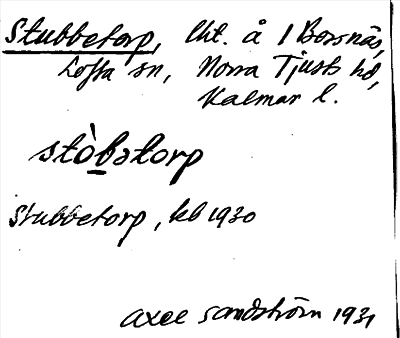 Stubbetorp, lht. å 1 Borsnäs,
Lofta sn, Norra Tjusts hd,
Kalmar l.
stòb̲ətorp
Stubbetorp, kb 1930
Axel Sandström 1931